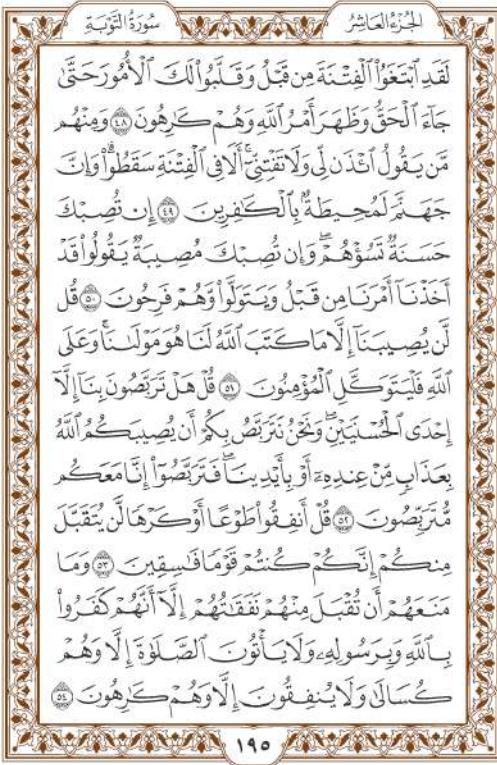 الجُزْءُ العَاشِرُ سُورَةُ التَّوْبَةِ
لَقَدِ ٱبْتَغَوُاْ ٱلْفِتْنَةَ مِن قَبْلُ وَقَلَّبُواْ لَكَ ٱلْأُمُورَ حَتَّىٰ
جَآءَ ٱلْحَقُّ وَظَهَرَ أَمْرُ ٱللَّهِ وَهُمْ كَٰرِهُونَ ٤٨ وَمِنْهُم
مَّن يَقُولُ ٱئْذَن لِّي وَلَا تَفْتِنِّيٓۚ أَلَا فِي ٱلْفِتْنَةِ سَقَطُواْۗ وَإِنَّ
جَهَنَّمَ لَمُحِيطَةٌۢ بِٱلْكَٰفِرِينَ ٤٩ إِن تُصِبْكَ
حَسَنَةٌ تَسُؤْهُمْۖ وَإِن تُصِبْكَ مُصِيبَةٌ يَقُولُواْ قَدْ
أَخَذْنَآ أَمْرَنَا مِن قَبْلُ وَيَتَوَلَّواْ وَّهُمْ فَرِحُونَ ٥٠ قُل
لَّن يُصِيبَنَآ إِلَّا مَا كَتَبَ ٱللَّهُ لَنَا هُوَ مَوْلَىٰنَاۚ وَعَلَى
ٱللَّهِ فَلْيَتَوَكَّلِ ٱلْمُؤْمِنُونَ ٥١ قُلْ هَلْ تَرَبَّصُونَ بِنَآ إِلَّآ
إِحْدَى ٱلْحُسْنَيَيْنِۖ وَنَحْنُ نَتَرَبَّصُ بِكُمْ أَن يُصِيبَكُمُ ٱللَّهُ
بِعَذَابٍ مِّنْ عِندِهِۦٓ أَوْ بِأَيْدِينَاۖ فَتَرَبَّصُوٓاْ إِنَّا مَعَكُم
مُّتَرَبِّصُونَ ٥٢ قُلْ أَنفِقُواْ طَوْعًا أَوْ كَرْهًا لَّن يُتَقَبَّلَ
مِنكُمْ إِنَّكُمْ كُنتُمْ قَوْمًا فَٰسِقِينَ ٥٣ وَمَا
مَنَعَهُمْ أَن تُقْبَلَ مِنْهُمْ نَفَقَٰتُهُمْ إِلَّآ أَنَّهُمْ كَفَرُواْ
بِٱللَّهِ وَبِرَسُولِهِۦ وَلَا يَأْتُونَ ٱلصَّلَوٰةَ إِلَّا وَهُمْ
كُسَالَىٰ وَلَا يُنفِقُونَ إِلَّا وَهُمْ كَٰرِهُونَ ٥٤
١٩٥